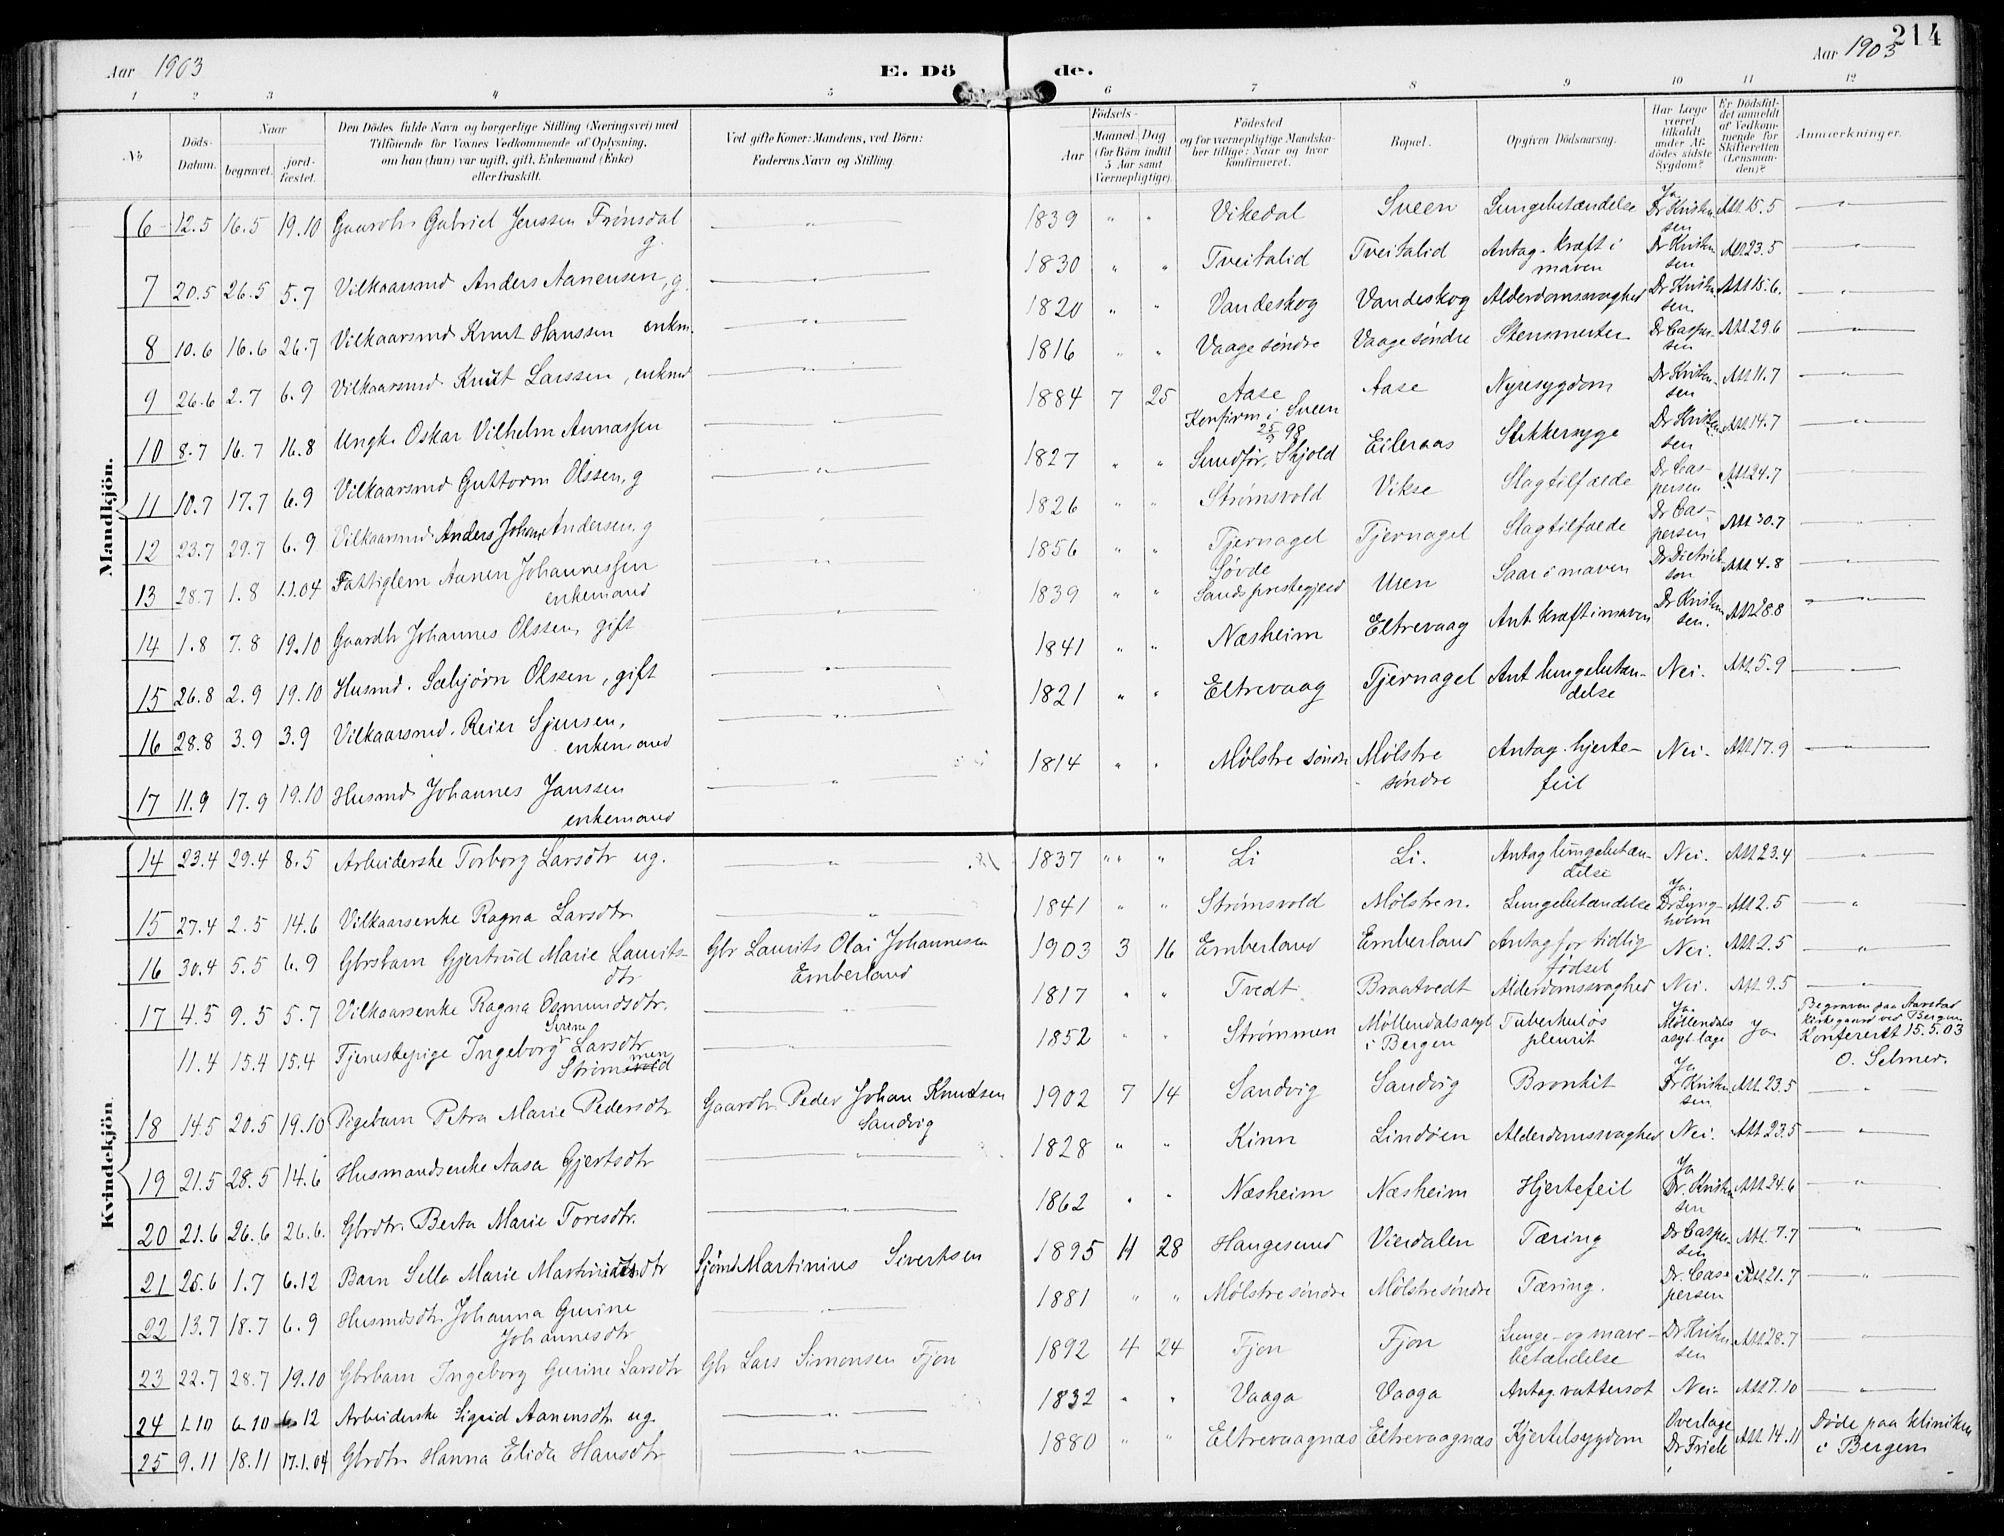 214
Aar 1903
E. Dö
de.
Aar 1903
1 2 3 4 5 6 7 8 9 10 11 12
No
Döds-Datum.
Naar
begravet.
jord-fæstet.
Den Dödes fulde Navn og borgerlige Stilling (Næringsvei) med
Tilföiende for Voxnes Vedkommende af Oplysning,
om han (hun) var ugift, gift, Enkemand (Enke)
eller fraskilt.
Ved gifte Koner: Mandens, ved Börn:
Faderens Navn og Stilling.
Födsels-
Aar
Maaned. Dag
(for Börn indtil
5 Aar samt
Værnepligtige).
Födested
og for værnepligtige Mandska-
ber tillige: Naar og hvor
konfirmeret.
Bopæl.
Opgiven Dödsaarsag.
Har Læge
været
tilkaldt
under Af-
dödes sidste
Sygdom?
Er Dödsfal-
det anmeldt
af Vedkom-
mende for
Skifteretten
(Lensman-
den)?
Anmærkninger.
Mandkjön.
6 12.5 16.5 19.10 Gaardbr. Gabriel Jenssen Frönsdal g. 1839 " " Vikedal Sveen Lungebetændelse Ja Dr Kristensen Att. 15.5
7 20.5 26.5 5.7 Vilkaarsmd Anders Aanensen, g. 1830 " " Tveitalid Tveitalid Antag. kræft i maven Dr Kristensen Att. 23.5
8 10.6 16.6 26.7 Vilkaarsmd Knut Hanssen enkm. 1820 " " Vandeskog Vandeskog Alderdomssvaghed Dr Kristensen Att 15.6.
9 26.6 2.7 6.9 Vilkaarsmd Knut Larssen, enkmd 1816 " " Vaage søndre Vaage søndre Stensmerter Dr Caspersen Att. 29.6
10 8.7 16.7 16.8 Ungk. Oskar Vilhelm Annassen 1884 7 25 Aase Konfirm. i Sveen 25/9 98 Aase Nyresygdom Dr Kristensen Att 11.7
11 10.7 17.7 6.9 Vilkaarsmd Guttorm Olssen, g 1827 " " Sundfør, Skjold Eileraas Sukkersyge Dr Kristensen Att 14.7
12 23.7 29.7 6.9 Vilkaarsmd. Anders Johan Andersen, g 1826 " " Strømsvold Vikse Slagtilfælde Dr Caspersen Att 24.7
13 28.7 1.8 1.1.04 Fattiglem Aanen Johannessen enkemand 1856 " " Tjernagel Tjernagel Slagtilfælde Dr Caspersen Att 30.7
14 1.8 7.8 19.10 Gaardbr Johannes Olssen, gift 1839 " " Søvde Sands prestegjeld Uren Saar i maven Dr Dietrichson Att 4.8
15 26.8 2.9 19.10 Husmd. Sæbjørn Olssen, gift 1841 " " Næsheim Eltrevaag Ant. kræft i maven Dr Kristensen. Att 28.8
16 28.8 3.9 3.9 Vilkaarsmd. Reier Sjursen, enkemand 1821 " " Eltrevaag Tjernagel Ant lungebetændelse Nei. Att. 5.9
17 11.9 17.9 19.10 Husmd Johannes Janssen enkemand 1814 " " Mølstre søndre Mølstre søndre Antag. hjertefeil Nei. Att. 17.9
Kvindekjön.
14 23.4 29.4 8.5 Arbeiderske Torborg Larsdtr ug. 1837 " " Li Li. Antag lungebetændelse Nei. Att. 23.4
15 27.4 2.5 14.6 Vilkaarsenke Ragna Larsdtr 1841 " " Strømsvold Mølstre n. Lungebetændelse Ja. Dr Lyngholm Att 2.5
16 30.4 5.5 6.9 Gbrsbarn Gjertrud Marie Lauritsdtr Gbr Laurits Olai Johannesen Emberland 1903 3 16 Emberland Emberland Antag for tidlig fødsel Nei. Att 2.5
17 4.5 9.5 5.7 Vilkaarsenke Ragna Osmundsdtr. 1817 " " Tvedt Braatvedt Alderdomssvaghed Nei. Att 9.5
11.4 15.4 15.4 Tjenestepige Ingeborg Sirine Larsdtr Strømmen 1852 " " Strømmen Møllendalsasyl i Bergen Tuberkuløs pleurit Ja. Møllendals asyl læge Ja Begraven paa Aarstad Kirkegaard ved Bergen Konfereret 15.5.03 O. Selmer.
18 14.5 20.5 19.10 Pigebarn Petra Marie Pedersdtr Gaardbr. Peder Johan Knudsen Sandvig 1902 7 14 Sandvig Sandvig Bronkit Ja Dr Kristensen Att. 23.5
19 21.5 28.5 14.6 Husmandsenke Aasa Gjertsdtr 1828 " " Kinn Lindøen Alderdomssvaghed Nei. Att 23.5
20 21.6 26.6 26.6. Gbrdtr. Berta Marie Toresdtr. 1862 " " Næsheim Næsheim Hjertefeil Ja Dr. Kristensen Att 24.6
21 25.6 1.7 6.12 Barn Sella Marie Martiniusdtr Sjømd Martinius Sivertsen 1895 11 28 Haugesund Vierdalen Tæring Dr Caspersen Att. 7.7
22 13.7 18.7 6.9 Husmdsdtr. Johanna Gurine Johannesdtr 1881 " " Mølstre søndre Mølstre søndre Tæring. Dr. Caspersen Att 21.7
23 22.7 28.7 19.10 Gbrbarn Ingeborg Gurine Larsdtr Gbr Lars Simonsen Fjon 1892 4 24 Fjon Fjon Lunge- og mavebetændelse Dr Kristensen Att. 28.7
24 1.10 6.10 6.12 Arbeiderske Sigrid Aanensdtr. ug. 1832 " " Vaaga Vaaga Antag. vattersot Nei. Att 7.10
25 9.11 18.11 17.1.04 Gbrdtr. Hanna Elida Hansdtr 1880 " " Eltrevaagnæs Eltrevaagnæs Kjertelsygdom Overlæge Dr Friele Att. 14.11 Døde paa kliniken i Bergen